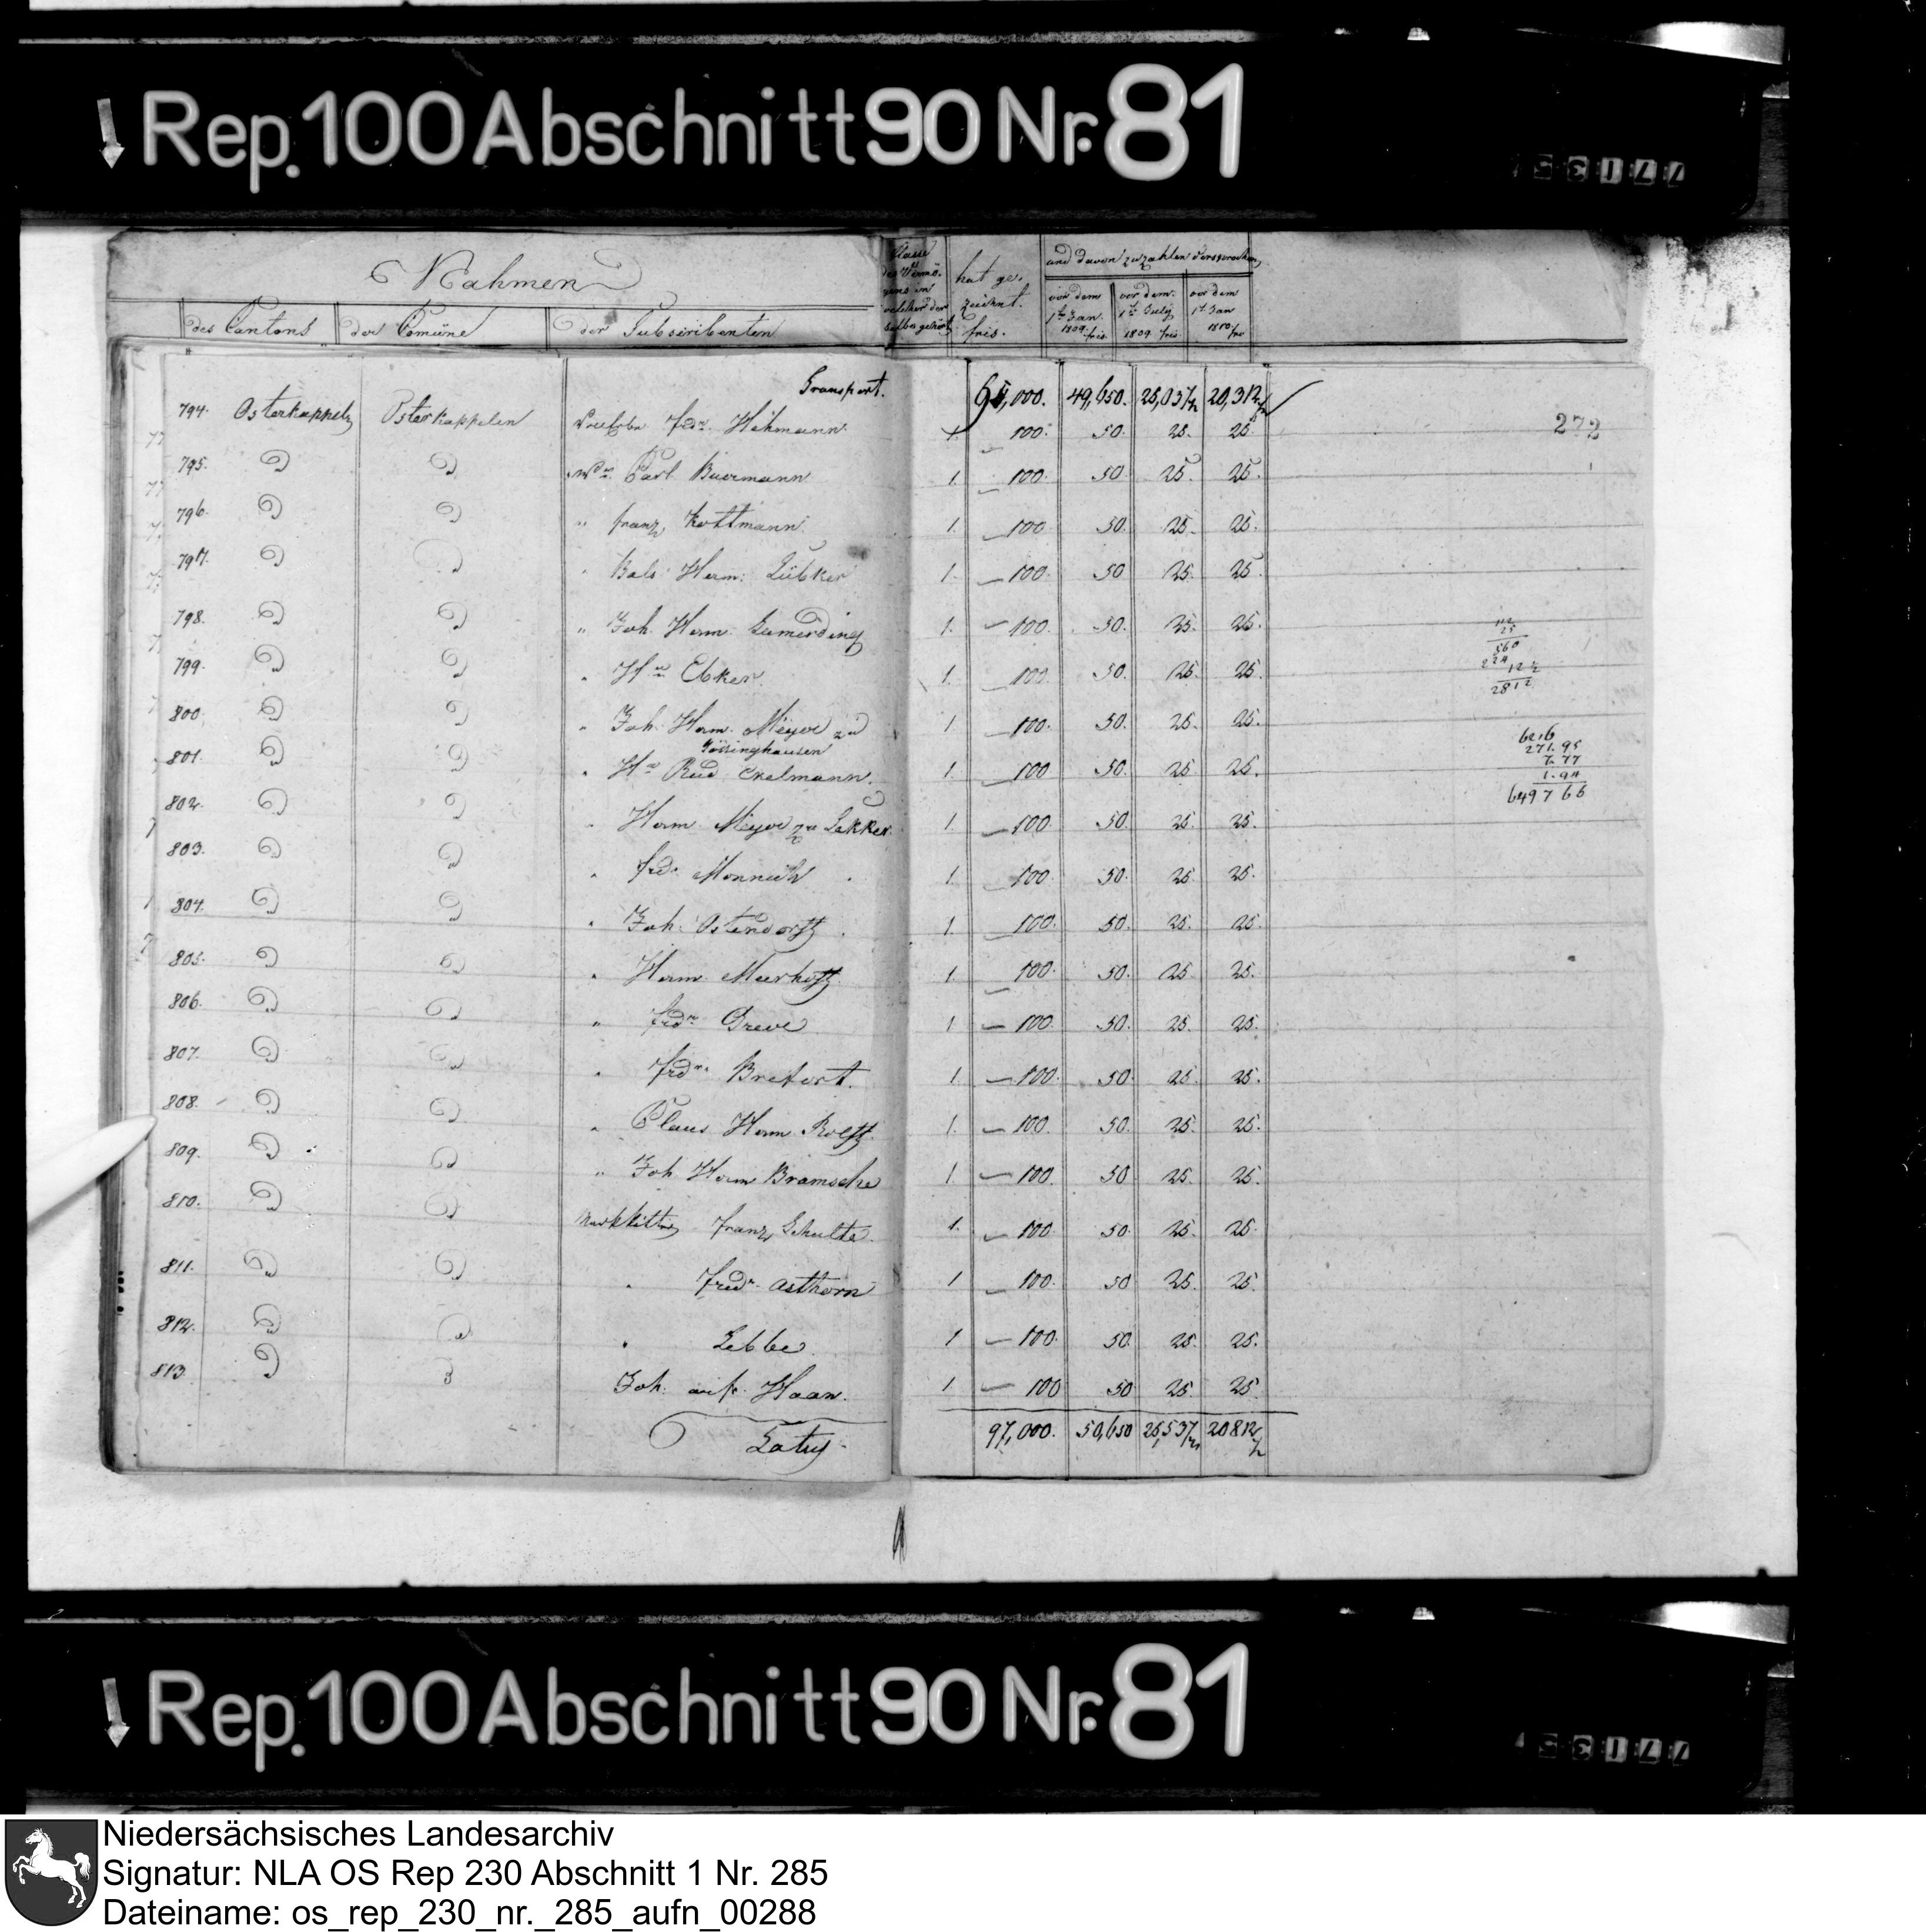 Rep. 100 Abschnitt 90 Nr. 81
Nahmen
des Cantons der Comüne der Subscribenten
Klasse des Vermögens in welcher derselbe gehört
hat gezeichnet. frcs.
und davon zu zahlen versprochen
vor dem 1t Jan. 1809 frcs.
vor dem 1t July 1809 frcs
vor dem 1t Jan 1810 frc
Transport. 95,000. 49,650. 25,037½ 20,312½
272
794. Osterkappeln Osterkappelen Fedr. Hohmann 1. 100. 50. 25. 25.
795. Carl Buermann 1. 100. 50 25. 25.
796. franz Kottmann 1. 100 50. 25. 25.
797. Bals. Herm: Lübker 1. 100. 50 25. 25.
798. Joh. Herm. Gumerding 1. 100. 50. 25. 25.
799. Hn Ebker. 1. 100. 50. 25. 25.
800. Joh. Herm. Meyer zu
Jössinghausen 1. 100. 50. 25. 25.
801. Hn Rud Exelmann. 1. 100 50. 25 25.
802. Herm. Meyer zu Lekker 1. 100 50. 25. 25.
803. frd. Monnich 1. 100. 50. 25 25.
804. Joh. Ostendorff. 1. 100. 50. 25. 25.
805. Herm Meerhoff. 1. 100. 50. 25 25.
806. frdr Greve 1 100. 50. 25. 25.
807. frdr. Brefort. 1. 100. 50. 25. 25.
808. Claus Herm Rolff. 1. 100. 50. 25. 25.
809. Joh Herm Bramsche 1. 100. 50 25. 25.
810. Markkötter franz Schulte. 1. 100. 50. 25. 25.
811. fredr. Asthorn 1 100. 50 25. 25.
812. Lebbe 1 100. 50. 25. 25.
813. Joh. Haan. 1 100 50 25. 25.
Latus. 97,000. 50,650 25,537½ 20812½
112
25
560
224
12½
2812
6216
271.95
7.77
1.94
649766
Rep. 100 Abschnitt 90 Nr. 81
Niedersächsisches Landesarchiv
Signatur: NLA OS Rep 230 Abschnitt 1 Nr. 285
Dateiname: os_rep_230_nr._285_aufn_00288